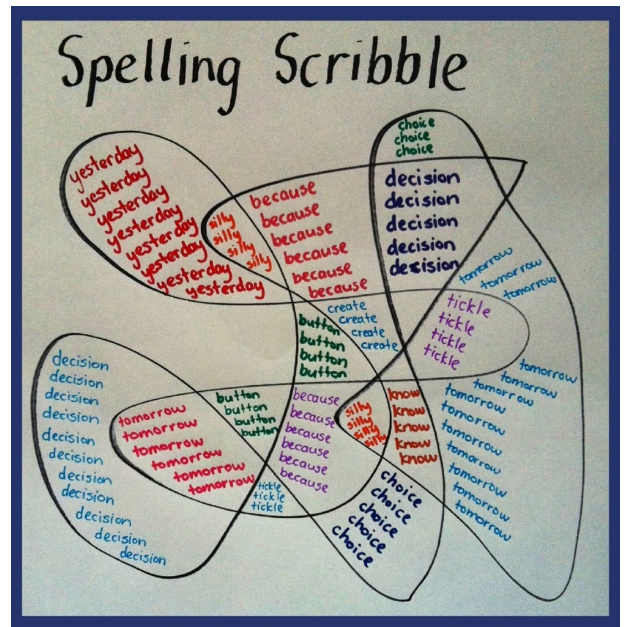 Spelling Scribble
yesterday
yesterday
yesterday
yesterday
yesterday
yesterday
yesterday
yesterday
silly
silly
silly
silly
because
because
because
because
because
because
choice
choice
choice
decision
decision
decision
decision
decision
tomorrow
tomorrow
tomorrow
create
create
create
create
tickle
tickle
tickle
tickle
button
button
button
button
decision
decision
decision
decision
decision
decision
decision
decision
decision
decision
decision
tomorrow
tomorrow
tomorrow
tomorrow
tomorrow
tomorrow
button
button
button
button
tickle
tickle
tickle
because
because
because
because
because
because
silly
silly
silly
silly
know
know
know
know
know
choice
choice
choice
choice
choice
tomorrow
tomorrow
tomorrow
tomorrow
tomorrow
tomorrow
tomorrow
tomorrow
tomorrow
tomorrow